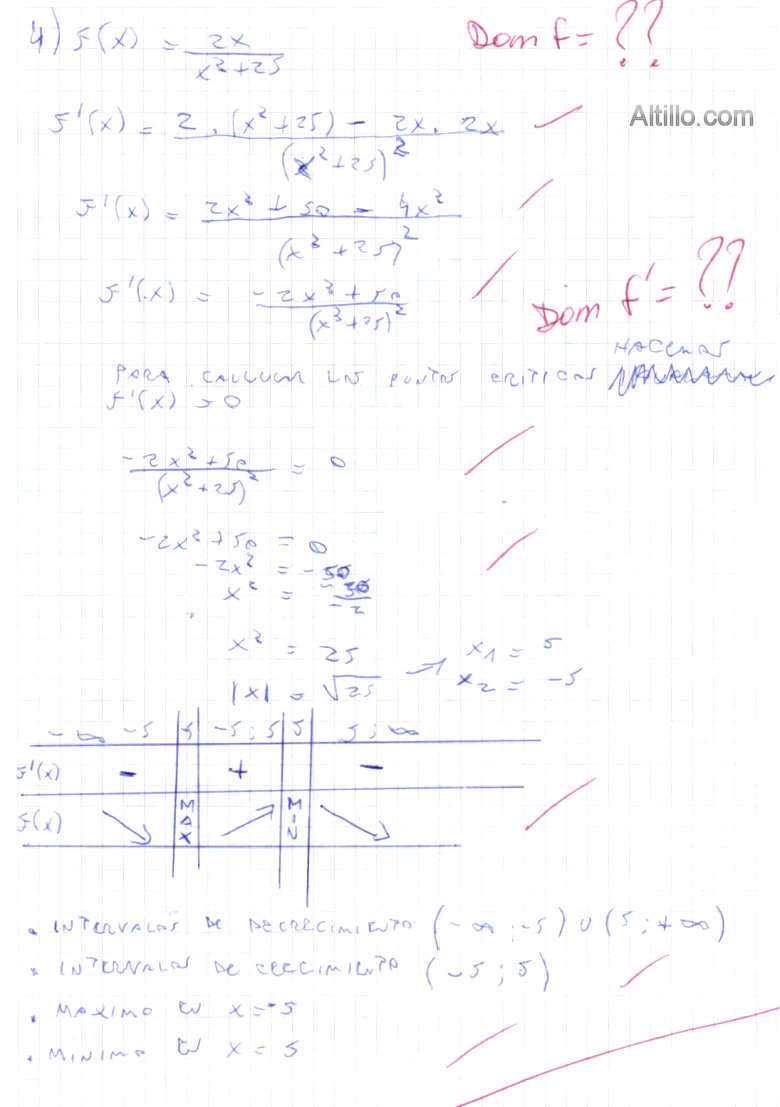 4) f(x) = 2x / (x²+25)
Dom f = ??
Altillo.com
f'(x) = 2 . (x²+25) - 2x . 2x / (x²+25)²
f'(x) = 2x² + 50 - 4x² / (x²+25)²
f'(x) = -2x² + 50 / (x²+25)²
Dom f' = ??
PARA CALCULAR LOS PUNTOS CRITICOS HACEMOS
f'(x) = 0
-2x²+50 / (x²+25)² = 0
-2x²+50 = 0
-2x² = -50
x² = -50 / -2
x² = 25
|x| = √25 → x1 = 5
x2 = -5
-∞ -5 | -5 | -5 ; 5 | 5 | 5 ; ∞
f'(x) - + -
f(x) MAX MIN
• INTERVALOS DE DECRECIMIENTO (-∞ ; -5) U (5 ; +∞)
• INTERVALOS DE CRECIMIENTO (-5 ; 5)
• MAXIMO EN x = -5
• MINIMO EN x = 5